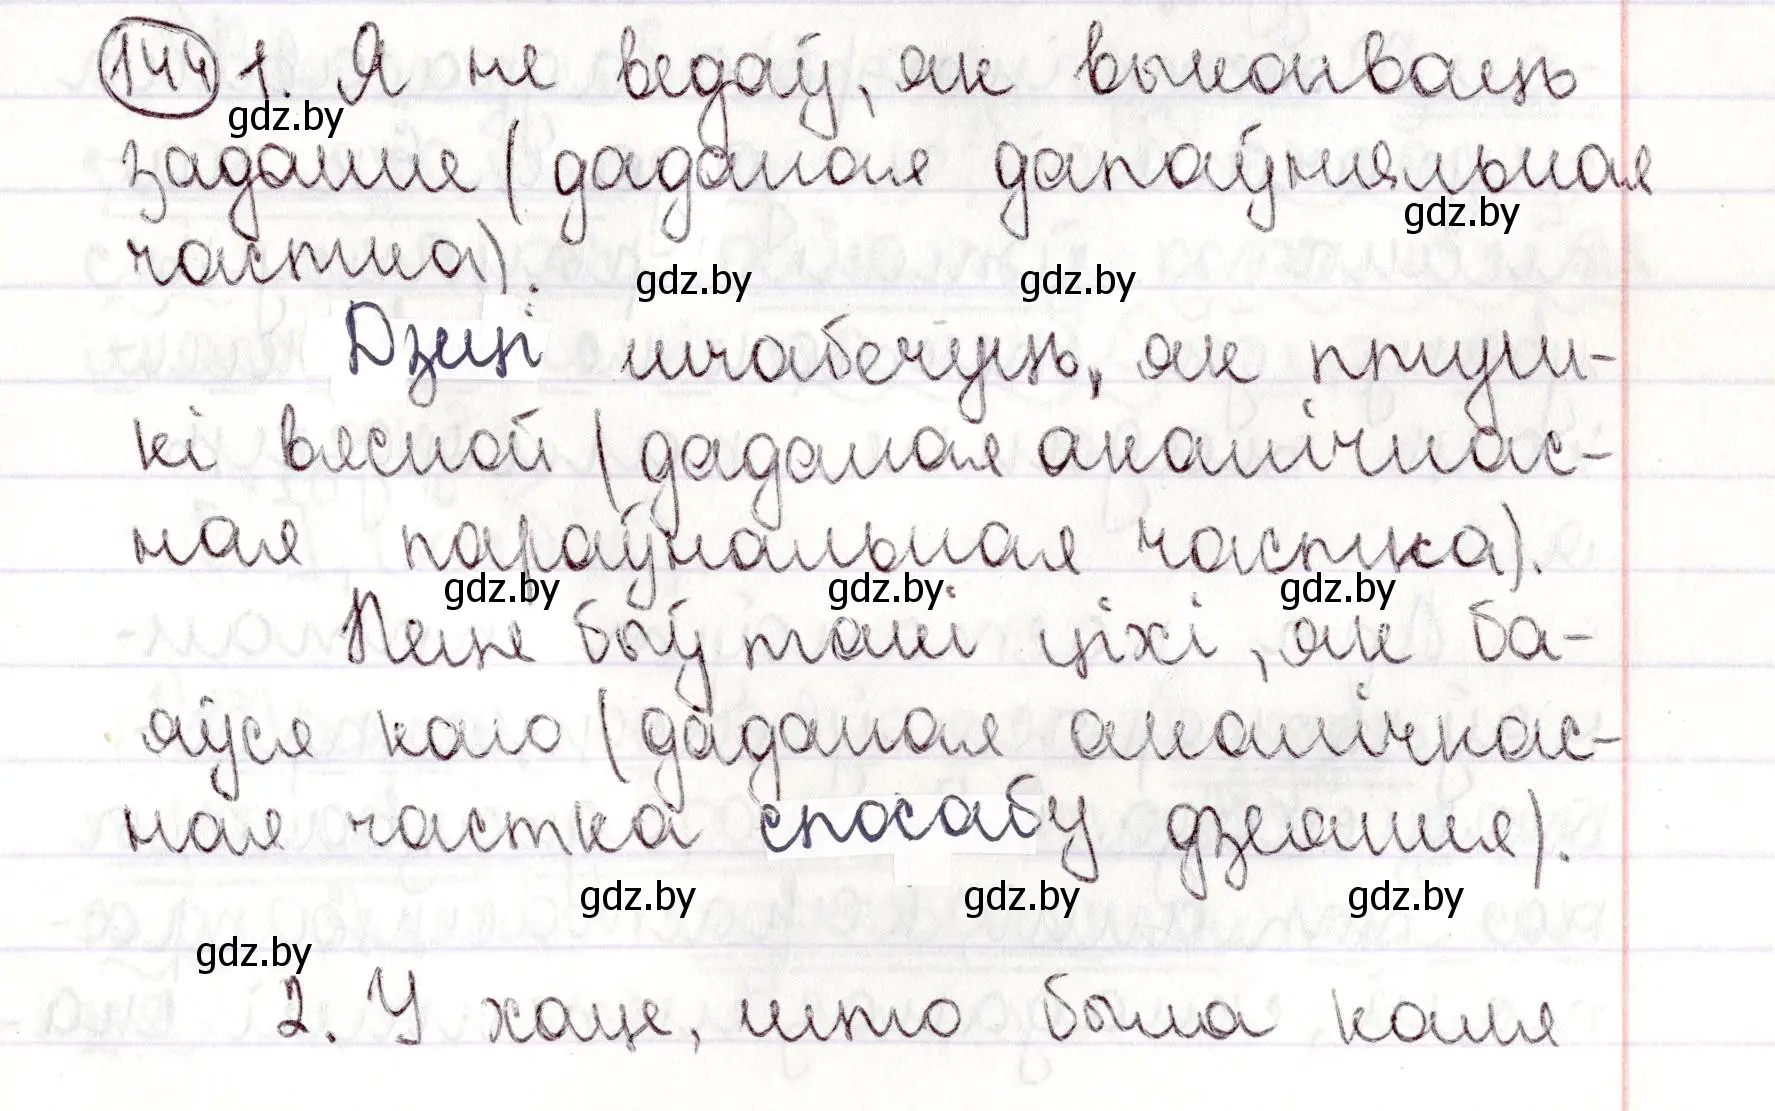 144 1. Я не ведаў, як выконваць
gdz.by
заданне (даданая дапаўняльная
gdz.by
частка).
gdz.by gdz.by
Дзеці шчабечуць, як птуш-
кі вясной (даданая акалічнас-
ная параўнальная частка).
gdz.by gdz.by gdz.by
Пеця быў такі ціхі, як ба-
яўся каго (даданая акалічнас-
ная частка спосабу дзеяння).
gdz.by gdz.by gdz.by
gdz.by
2. У хаце, што была каля